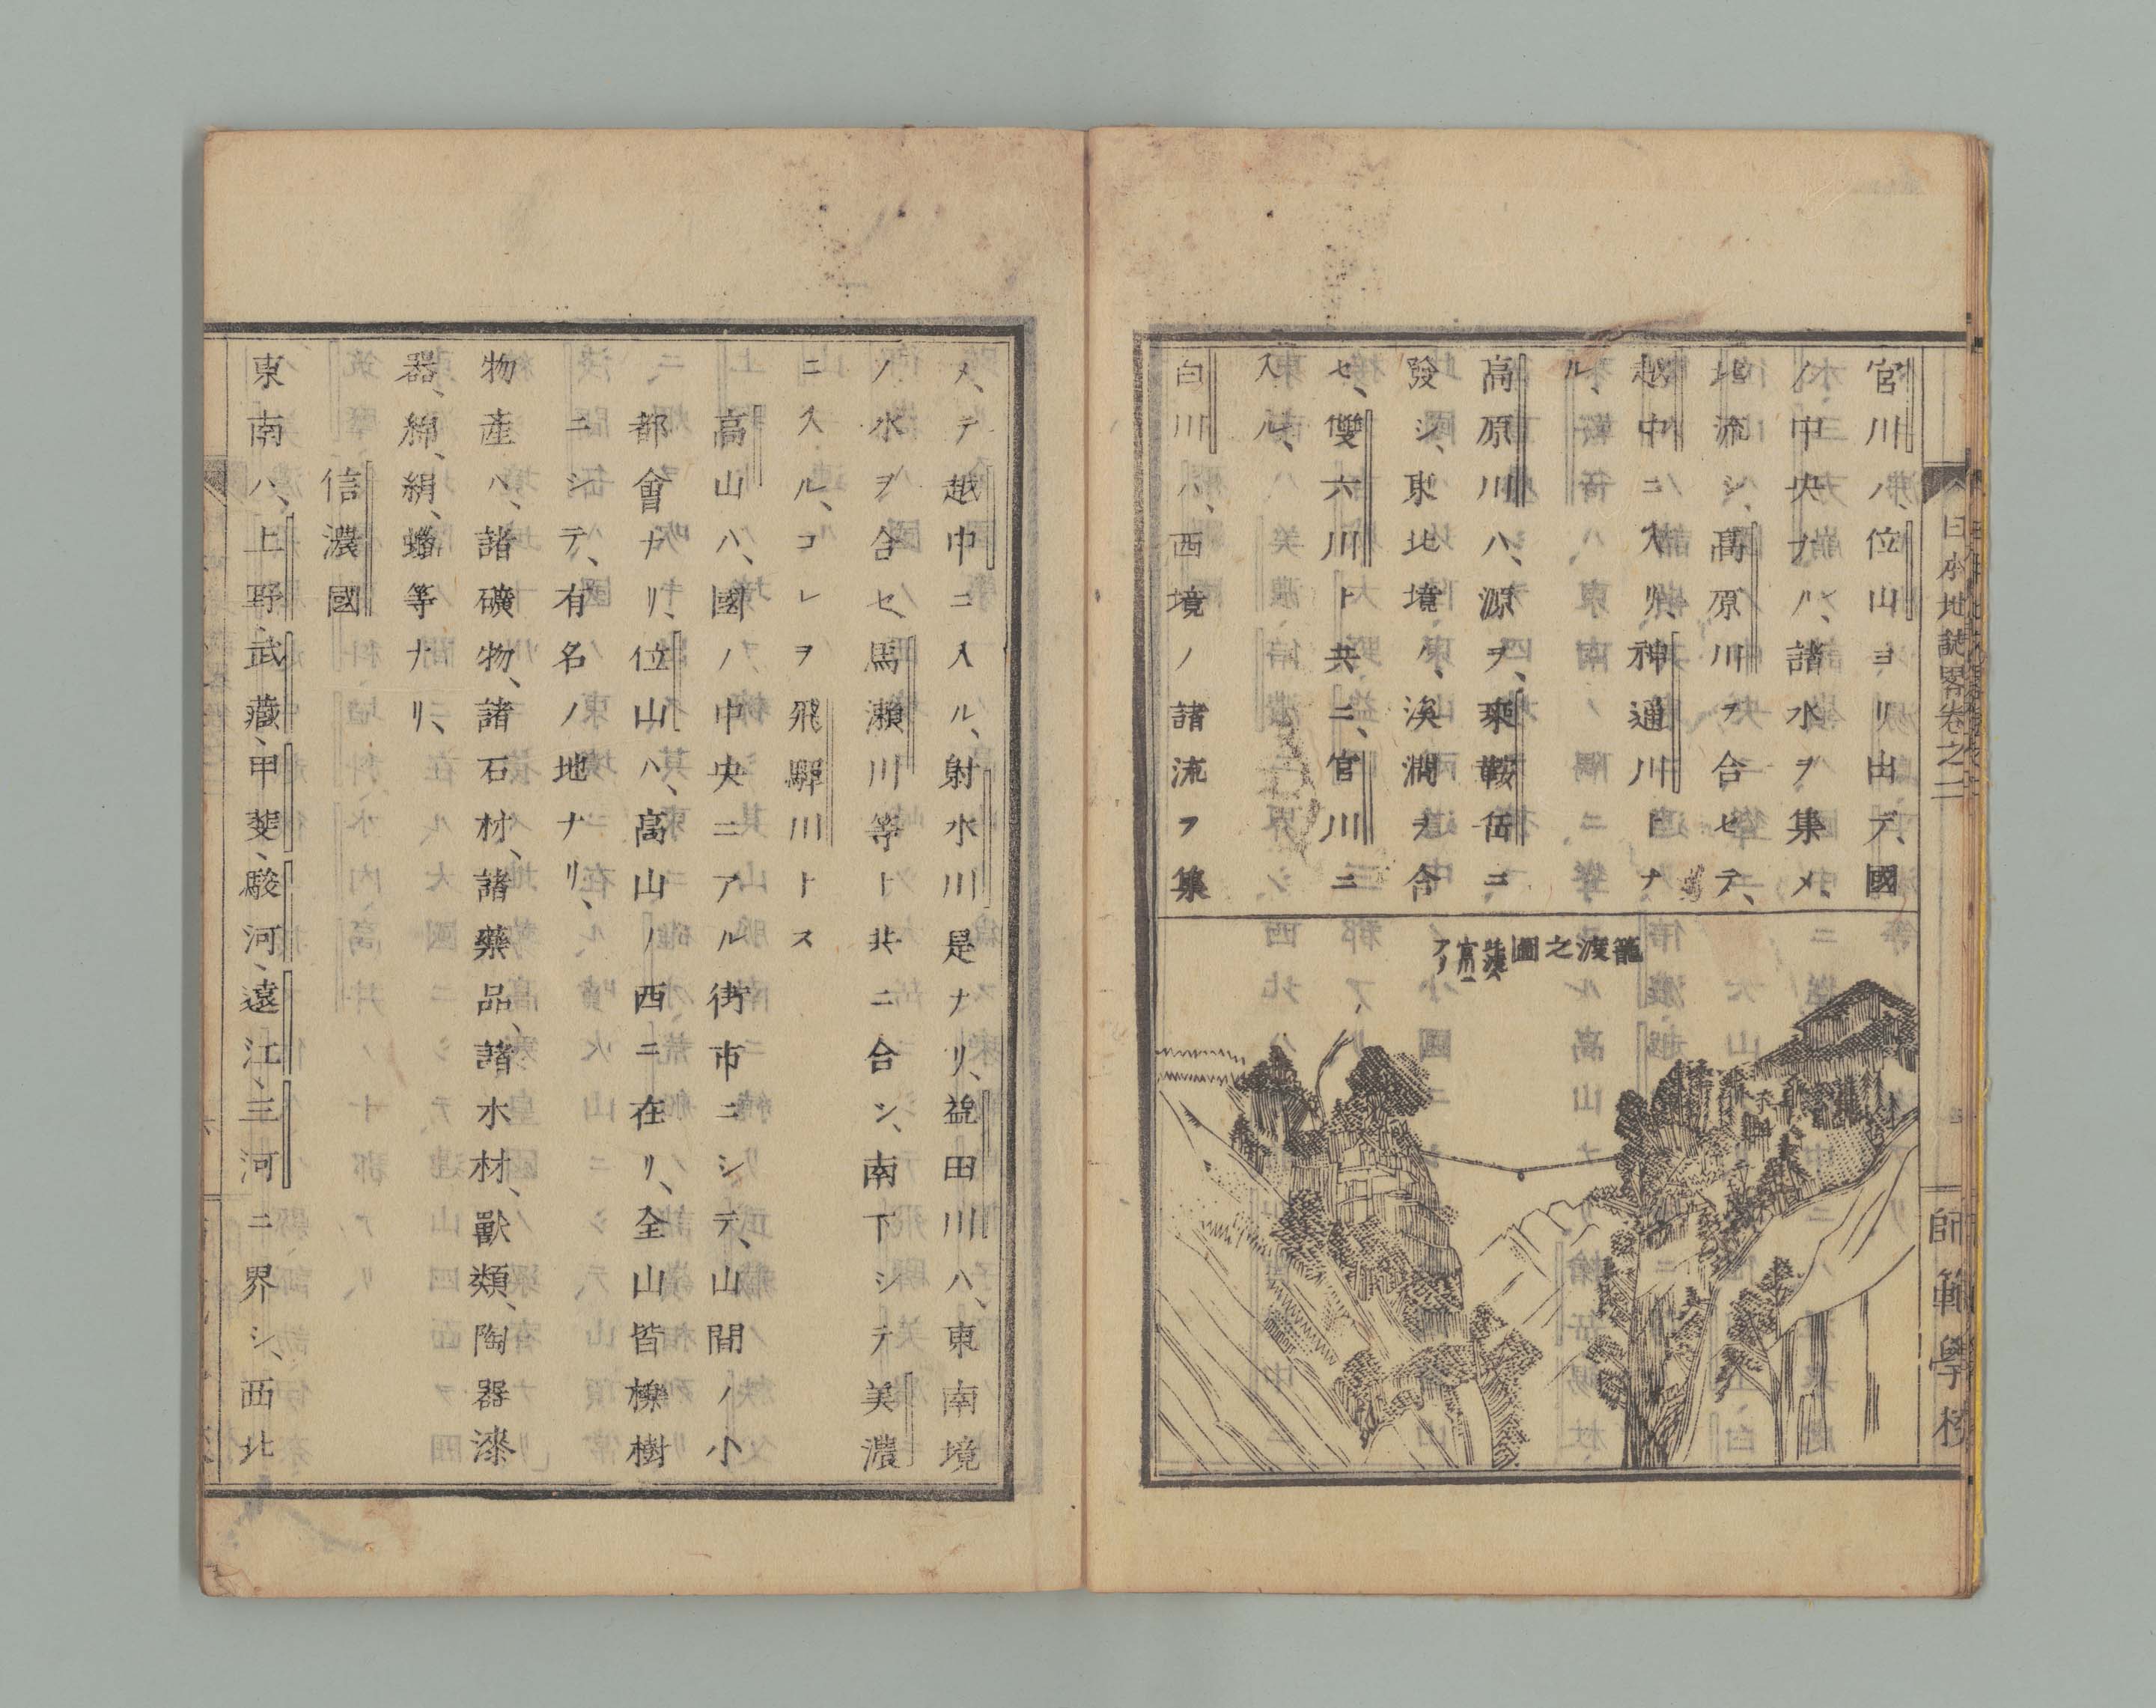 日本地誌畧卷之二
師範學校
官川ノ位山ヨリ出デ、國
ノ中央ナル、諸水ヲ集メ、
北流シ、高原川ヲ合セテ、
越中ニ入リ、神通川トナ
ル、
高原川ハ、源ヲ、乘鞍岳ニ
發シ、東北境ノ、溪澗ヲ合
セ、雙六川ト共ニ、官川ニ
入ル、
白川ハ、西境ノ諸流ヲ集
籠渡之圖
メ、テ越中ニ入ル、射水川是ナリ、益田川ハ、東南境
ノ水ヲ合セ、馬瀨川等ト共ニ合シ、南下シテ美濃
ニ入ル、コレヲ飛驒川トス
高山ハ、國ノ中央ニアル街市ニシテ、山間ノ小
都會ナリ、位山ハ、高山ノ西ニ在リ、全山皆櫟樹
ニシテ、有名ノ地ナリ、
物產ハ、諸礦物、諸石材、諸藥品、諸木材、獸類、陶器漆
器、綿、絹、蠟等ナリ、
信濃國
東南ハ、上野、武藏、甲斐、駿河、遠江、三河ニ界シ、西北